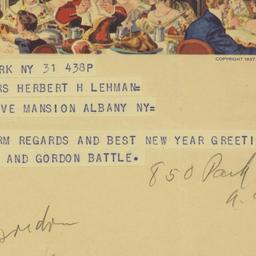 COPYRIGHT 1937
RK NY 31 438P
RS HERBERT H LEHMAN=
VE MANSION ALBANY NY=
RM REGARDS AND BEST NEW YEAR GREETI
AND GORDON BATTLE.
850 Park
Gordon